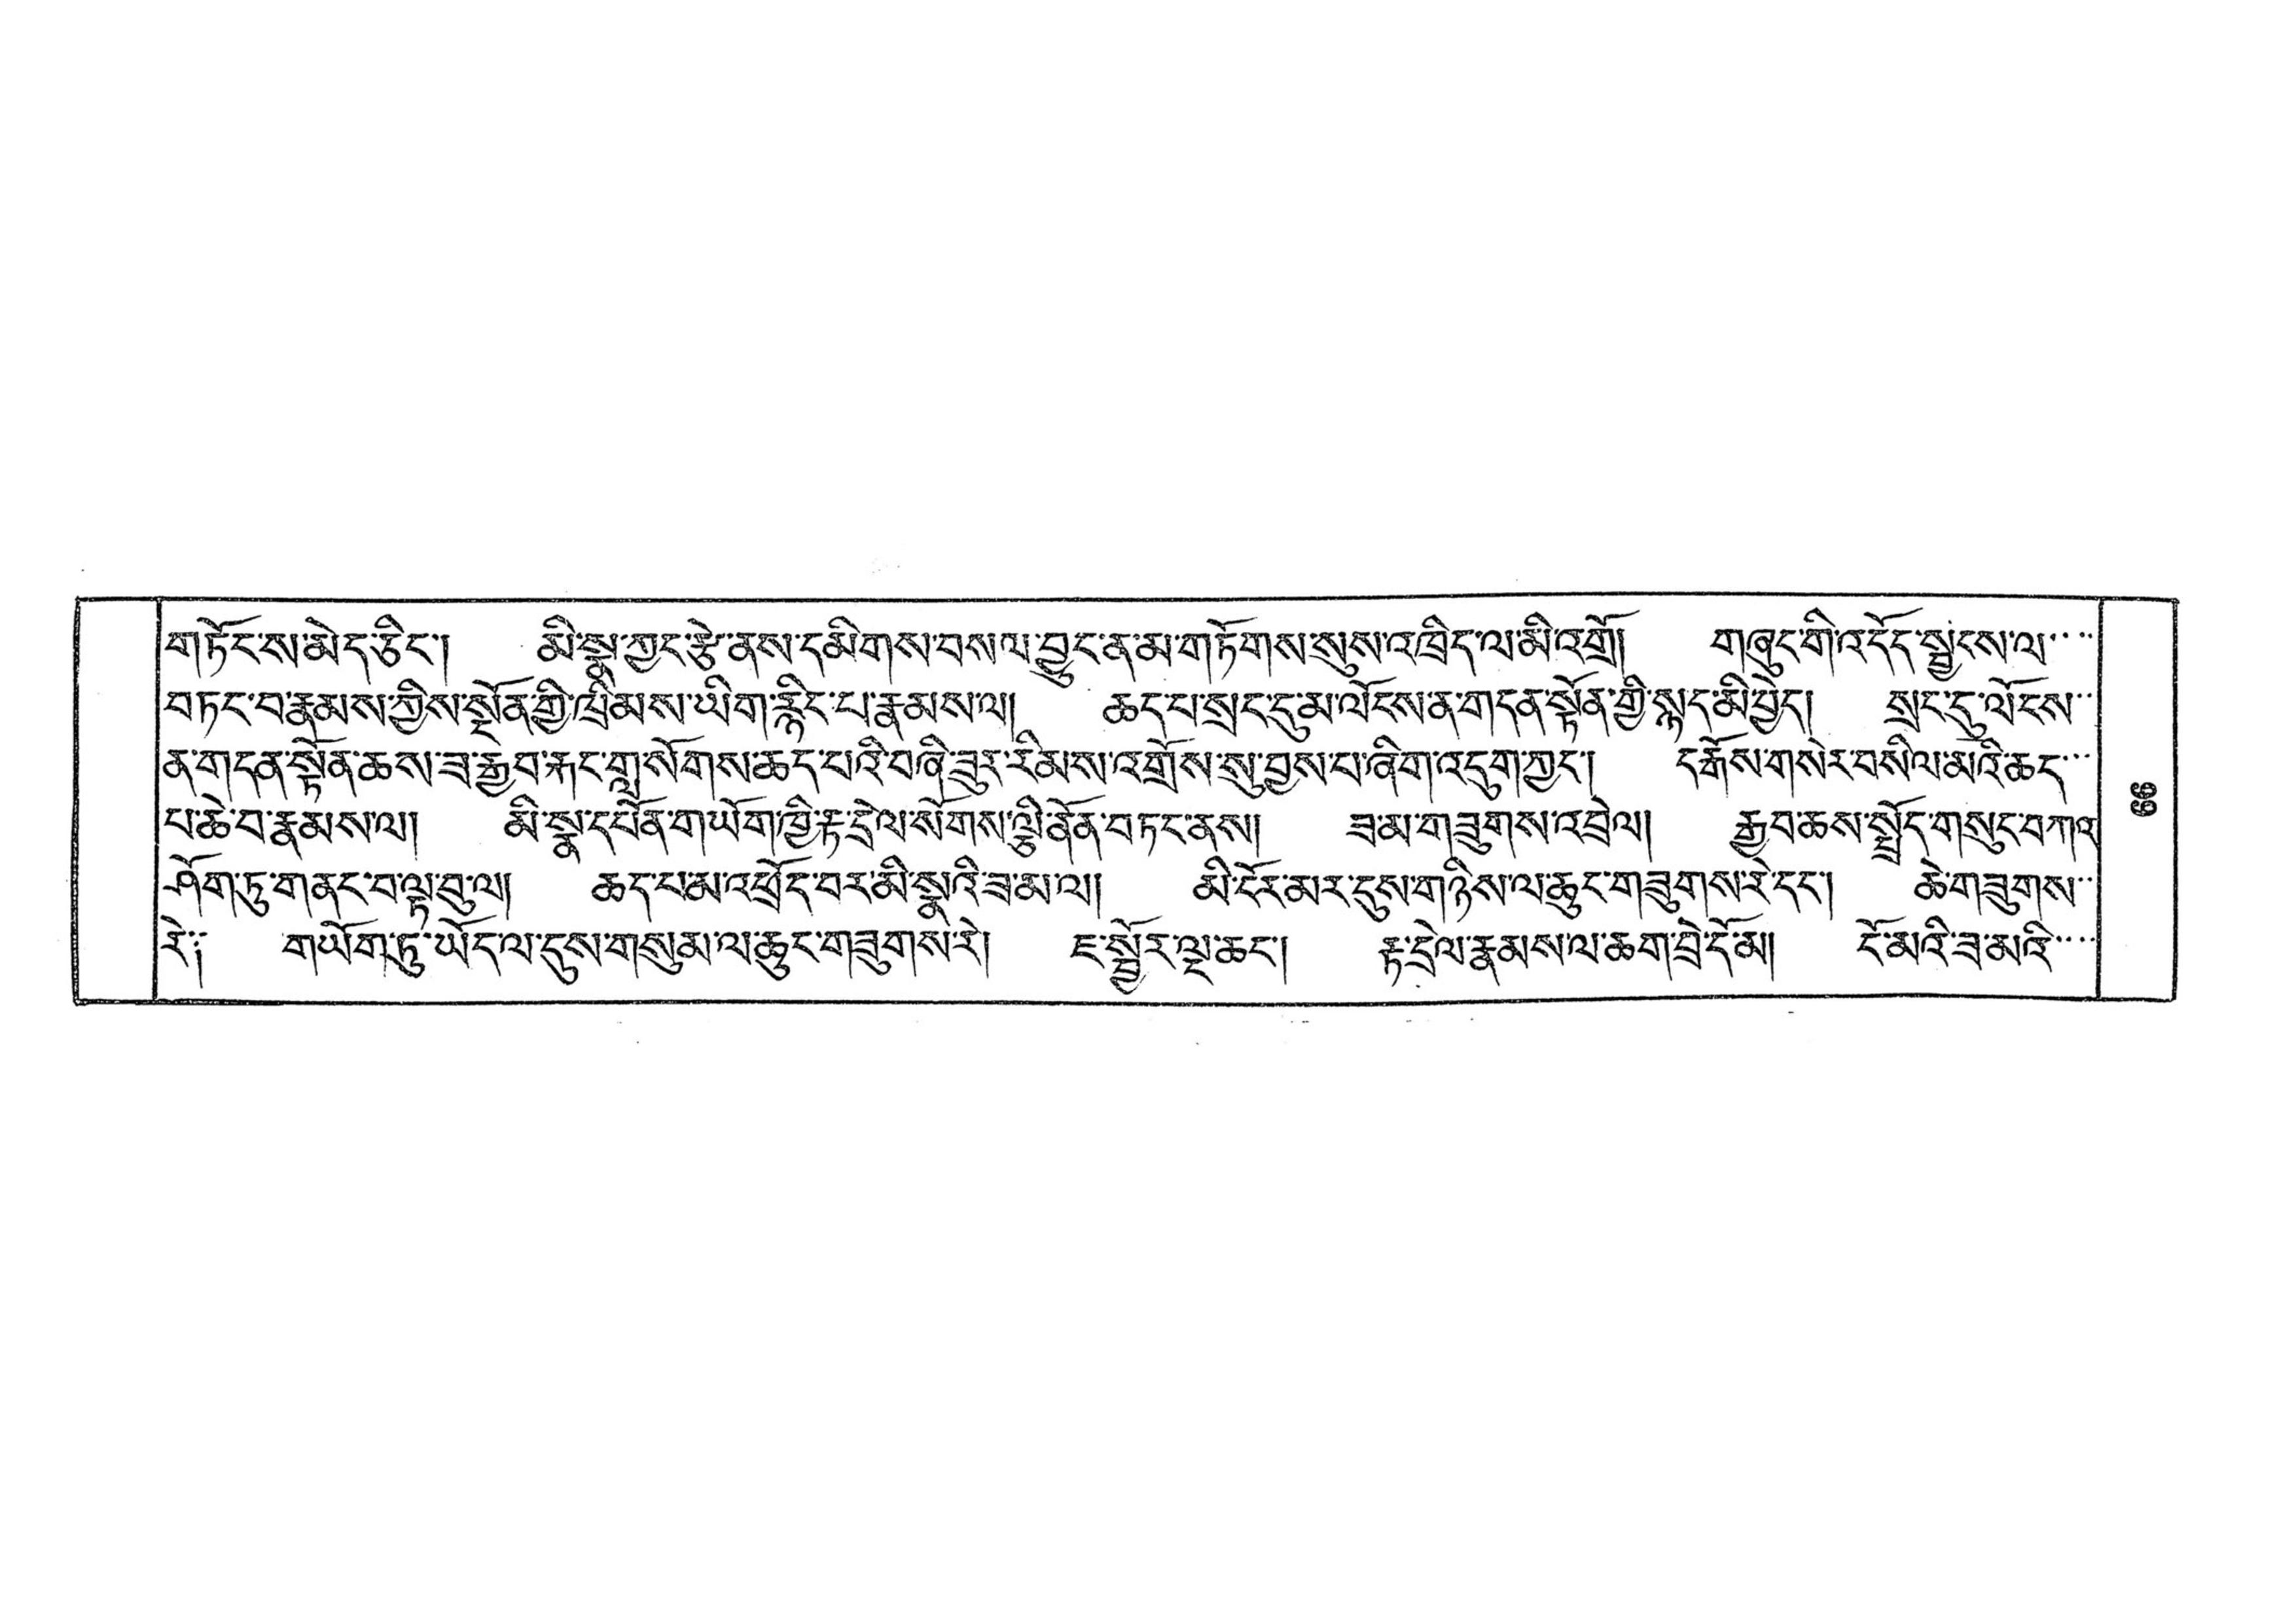 གཏོང་ས་མེད་ཅིང་། མི་སྣ་ཀྱང་རྩེ་ནས་དམིགས་བསལ་བྱུང་ན་མ་གཏོགས་སུས་འཁྲིད་ལ་མི་འགྲོ། གཞུང་གི་འདོད་སྦྱངས་ལ་
བཏང་བ་རྣམས་ཀྱིས་སྔོན་གྱི་ཁྲིམས་ཡིག་རྙིང་པ་རྣམས་ལ། ཆད་པ་སྲང་དུ་མ་ལོངས་ན་གདན་སྟོན་གྱི་སྙད་མི་བྱེད། སྲང་དུ་ལོངས་
ན་གདན་སྟོན་ཆས་ཟ་རྒྱབ་རྐང་གླ་སོགས་ཆད་པའི་བཞི་ཟུར་རིམས་འགྲོས་སུ་བྱས་པ་ཞིག་འདུག་ཀྱང་། དངོས་གསེར་བསིལ་མའི་ཆད་
པ་ཆེ་བ་རྣམས་ལ། མི་སྣ་དཔོན་གཡོག་ཁྱི་རྟ་དྲེལ་སོགས་ལྕི་ནོན་བཏང་ནས། ཟམ་གཟུགས་འབྲེལ། རྒྱབ་ཆས་སྤྲོད་གསུང་བཀའ
ཤོག་ཏུ་གནང་བ་ལྟ་བུ་ལ། ཆད་པ་མ་འཕྲོད་བར་མི་སྣའི་ཟ་མ་ལ། མི་ངོར་མར་དུས་གཉིས་ལ་ཆུང་གཟུགས་རེ་དང་། ཆེ་གཟུགས་
རེ། གཡོག་ཏུ་ཡོད་ལ་དུས་གསུམ་ལ་ཆུང་གཟུགས་རེ། ཇ་སྦྱོར་ལྔ་ཆང་། རྟ་དྲེལ་རྣམས་ལ་ཆག་བྲེ་དོམ། ངོ་མའི་ཟ་མའི་
༦༦